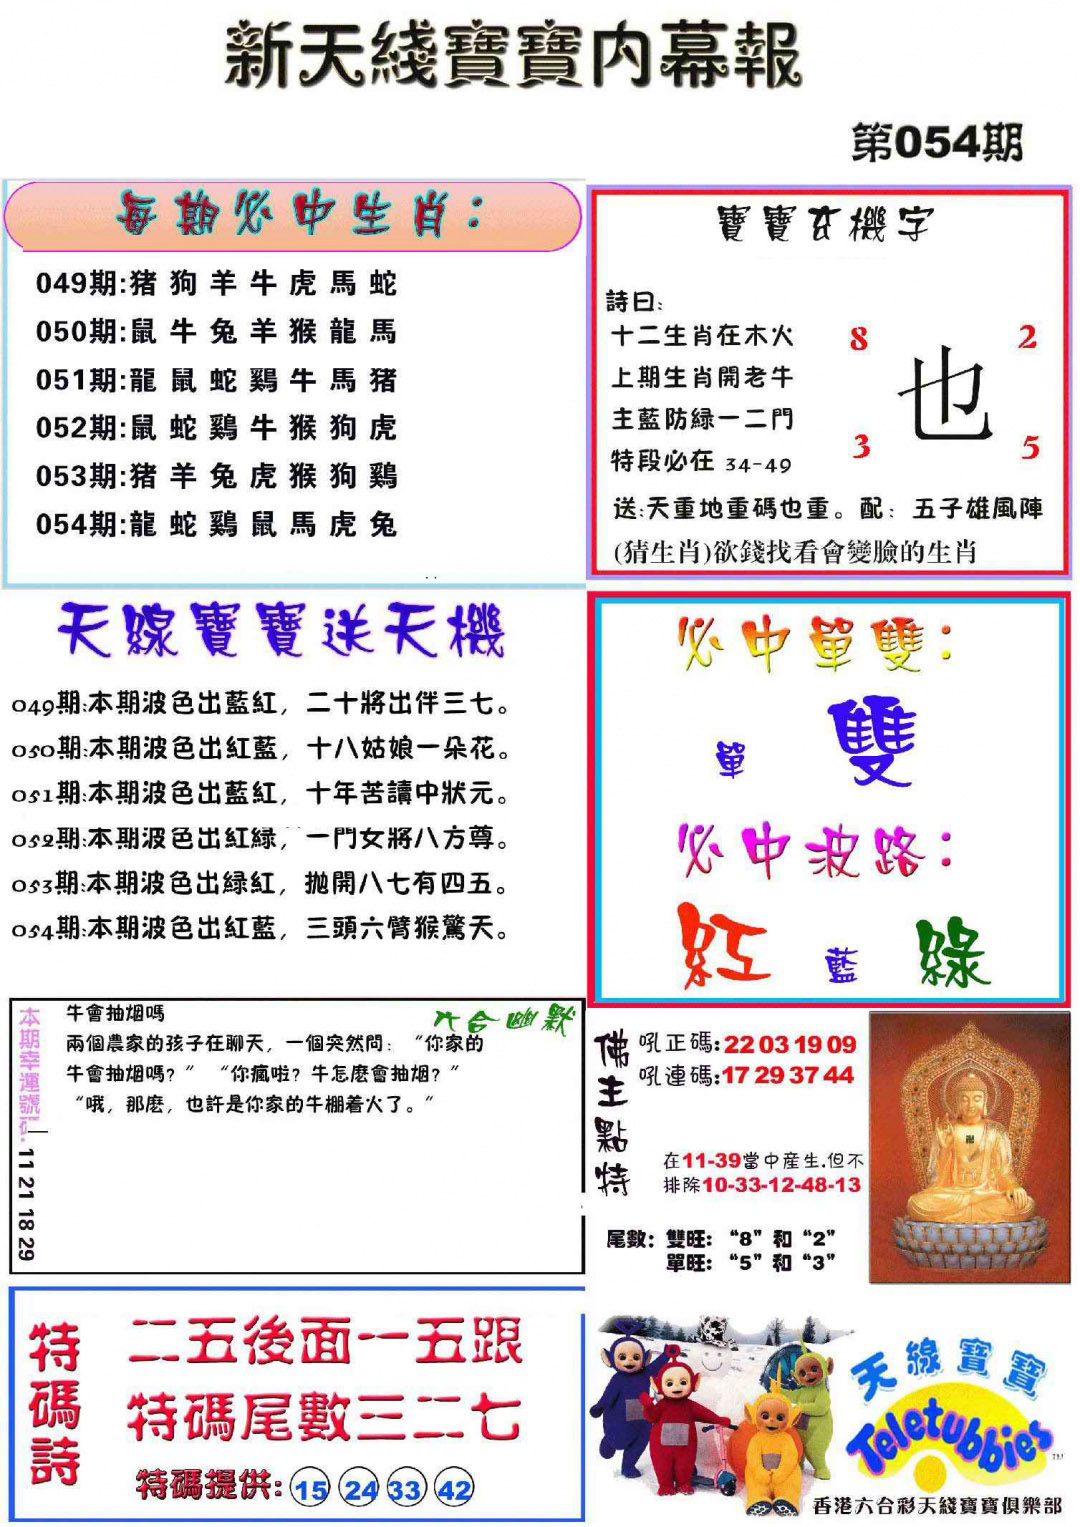 新天綫寶寶内幕報
第054期
每期必中生肖:
049期:猪狗羊牛虎馬蛇
050期:鼠牛兔羊猴龍馬
051期:龍鼠蛇鷄牛馬猪
052期:鼠蛇鷄牛猴狗虎
053期:猪羊兔虎猴狗鷄
054期:龍蛇鷄鼠馬虎兔
寶寶玄機字
詩曰:
十二生肖在木火
上期生肖開老牛
主藍防緑一二門
特段必在 34-49
8
2
也
3
5
送:天重地重碼也重。配：五子雄風陣
(猜生肖)欲錢找看會變臉的生肖
天線寶寶送天機
049期:本期波色出藍紅，二十將出伴三七。
050期:本期波色出紅藍，十八姑娘一朵花。
051期:本期波色出藍紅，十年苦讀中狀元。
052期:本期波色出紅緑，一門女將八方尊。
053期:本期波色出緑紅，抛開八七有四五。
054期:本期波色出紅藍，三頭六臂猴驚天。
必中單雙:
單 雙
必中波路:
紅 藍 綠
本期幸運號碼: 11 21 18 29
六合幽默
牛會抽烟嗎
兩個農家的孩子在聊天，一個突然問：“你家的
牛會抽烟嗎？”“你瘋啦？牛怎麽會抽烟？”
“哦，那麽，也許是你家的牛棚着火了。”
佛主點特
吼正碼:22 03 19 09
吼連碼:17 29 37 44
在11-39當中産生.但不
排除10-33-12-48-13
尾數：雙旺：“8”和“2”
單旺：“5”和“3”
特碼詩
二五後面一五跟
特碼尾數三二七
特碼提供: 15 24 33 42
天線寶寶
Teletubbies
TM
香港六合彩天綫寶寶俱樂部